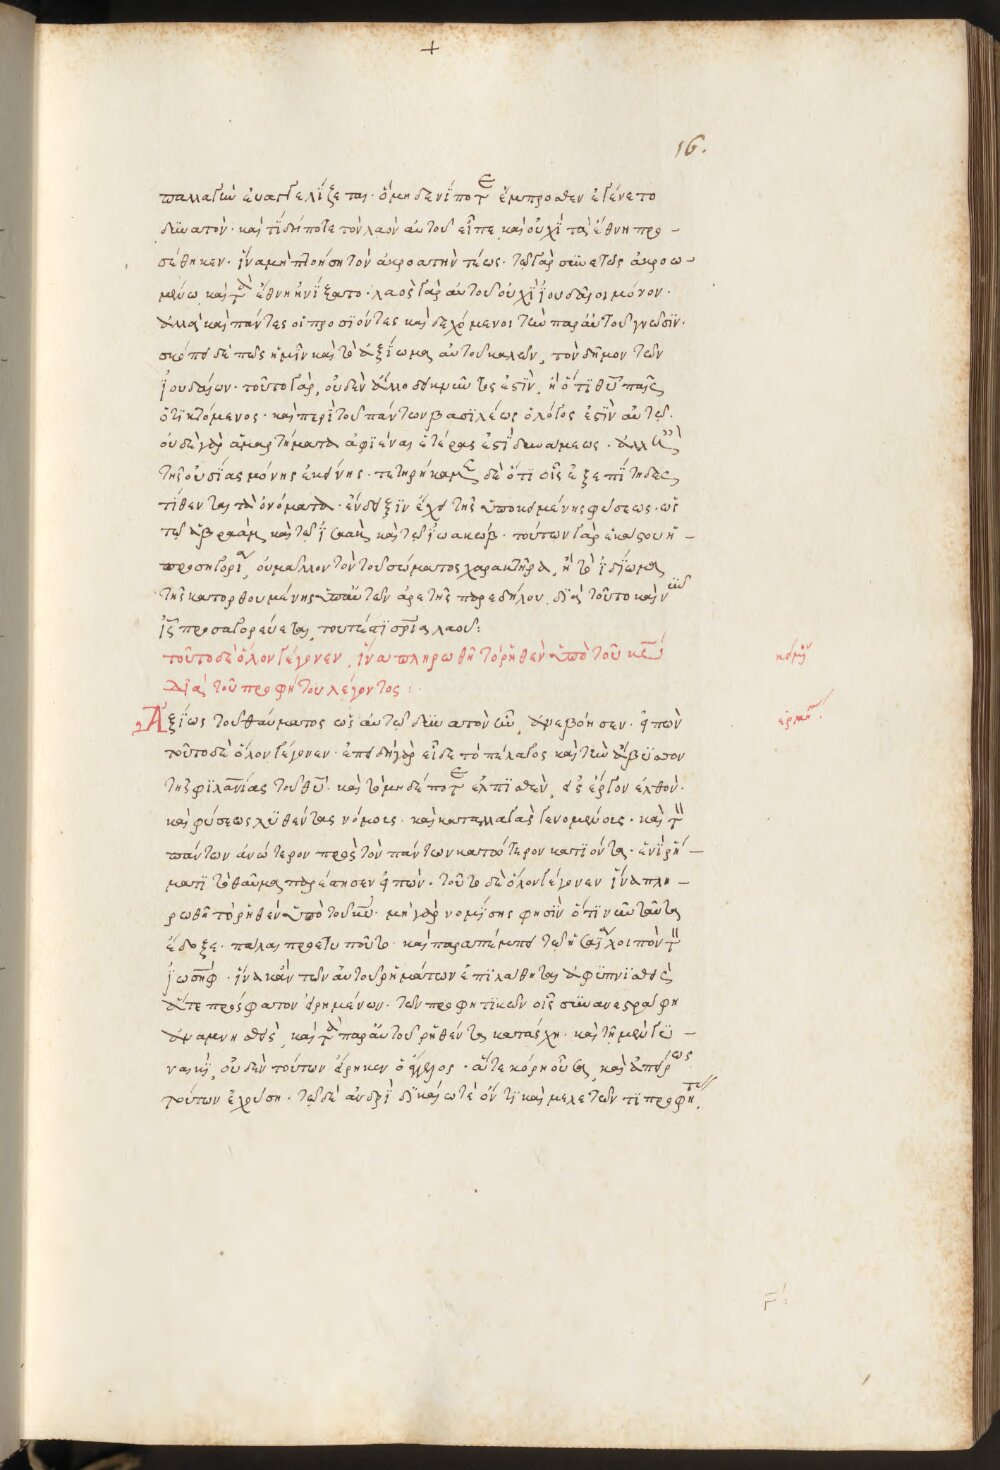 +
16.
παλλαγὴν εὐαγγελίζεται· ὃ μηδενί ποτε ἔμπροσθεν ἐγένετο
δυνατόν· καὶ τί δήποτε τὸν λαὸν αὐτοῦ εἶπε, καὶ οὐχὶ τὰ ἔθνη προ-
σέθηκεν· ἵνα μὴ πτοήσῃ τὸν ἀκροατὴν τέως· τῷ γὰρ συνετῶς ἀκροω-
μένῳ, καὶ τὰ ἔθνη ᾐνίξατο· λαὸς γὰρ αὐτοῦ οὐχὶ ἰουδαῖοι μόνον·
ἀλλὰ καὶ πάντες οἱ προσιόντες καὶ δεχόμενοι τὴν παρ' αὐτοῦ γνῶσιν·
σκόπει δὲ πῶς ἡμῖν καὶ τὸ ἀξίωμα αὐτοῦ καλῶν, τὸν δῆμον τῶν
ἰουδαίων· τοῦτο γὰρ, οὐδὲν ἄλλο δεικνῦντός ἐστιν, ἢ ὅτι θῦ παῖς
ὁ τικτόμενος· καὶ περὶ τοῦ πάντων βασιλέως ὁ λόγος ἐστὶν αὐτῷ·
οὐδὲ γὰρ ἁμαρτήματα ἀφιέναι ἑτέρας ἐστὶ δυνάμεως· ἀλλ' ἢ
τῆς οὐσίας μόνης ἐκείνης· τετηρήκαμεν δὲ ὅτι οἷς ἐξεπίτηδες
τίθενται τὰ ὀνόματα· ἔνδειξιν ἔχει τῆς ὑποκειμένης φύσεως· ὡς
τῷ ἀβραὰμ καὶ τῷ ἰσαὰκ καὶ τῷ ἰακώβ· τούτων γὰρ ἑκάστου ἡ
προσηγορία, οὐ μᾶλλον τὸν τοῦ σώματος χαρακτῆρα, ἢ τὸ ἰδίωμα
τῆς κατορθουμένης ὑπ' αὐτῶν ἀρετῆς παρεδήλου, διὰ τοῦτο καὶ νῦν
ἰς προσαγορεύεται, τουτέστι σρία λαοῦ:
τοῦτο δὲ ὅλον γέγονεν, ἵνα πληρωθῆ τὸ ῥηθὲν ὑπὸ τοῦ κῦ κείμεν
διὰ τοῦ προφήτου λέγοντος:
Ἀξίως τοῦ θαύματος ὡς αὐτῷ δυνατὸν ἦν, ἀνεβόησεν· εἰπὼν ἑρμην
τοῦτο δὲ ὅλον γέγονεν· ἐπειδὴ γὰρ εἶδε τὸ πέλαγος καὶ τὴν ἄβυσσον
τῆς φιλανίας τοῦ θῦ· καὶ τὸ μηδέποτε ἐλπισθὲν, εἰς ἔργον ἐλθὸν·
καὶ φύσεως λυθέντας νόμους· καὶ καταλλαγὰς γενομένας· καὶ τὸν
πάντων ἀνώτερον πρὸς τὸν πάντων κατώτερον κατιόντα· ἑνὶ ῥή-
ματι τὸ θαῦμα παρέστησεν εἰπών· τοῦτο δὲ ὅλον γέγονεν ἵνα πλη-
ρωθῆ τὸ ῥηθὲν ὑπὸ τοῦ κῦ· μὴ γὰρ νομίσης φησὶν ὅτι νῦν ταῦτα
ἔδοξε· πάλαι προετυποῦτο· καὶ παραπέμπει τῷ ἡσαΐᾳ λοιπὸν τὸν
ἰωσὴφ· ἵνα κἂν τῶν αὐτοῦ ῥημάτων ἐπιλάθηται ἀφυπνισθεὶς
ἅτε πρόσφατον εἰρημένων· τῶν προφητικῶν οἷς συνανεστράφη
ἀναμνησθεὶς, καὶ τὰ παρ' αὐτοῦ ῥηθέντα κατάσχη· καὶ τῇ μὲν γυ-
ναικὶ, οὐδὲν τούτων εἴρηκεν ὁ ἄγγελος· ἅτε κόρη οὖσα, καὶ ἀπείρως
τούτων ἐχούση· τῷ δὲ ἀνδρὶ δικαίῳ τε ὄντι καὶ μελετῶντι προφήτας,